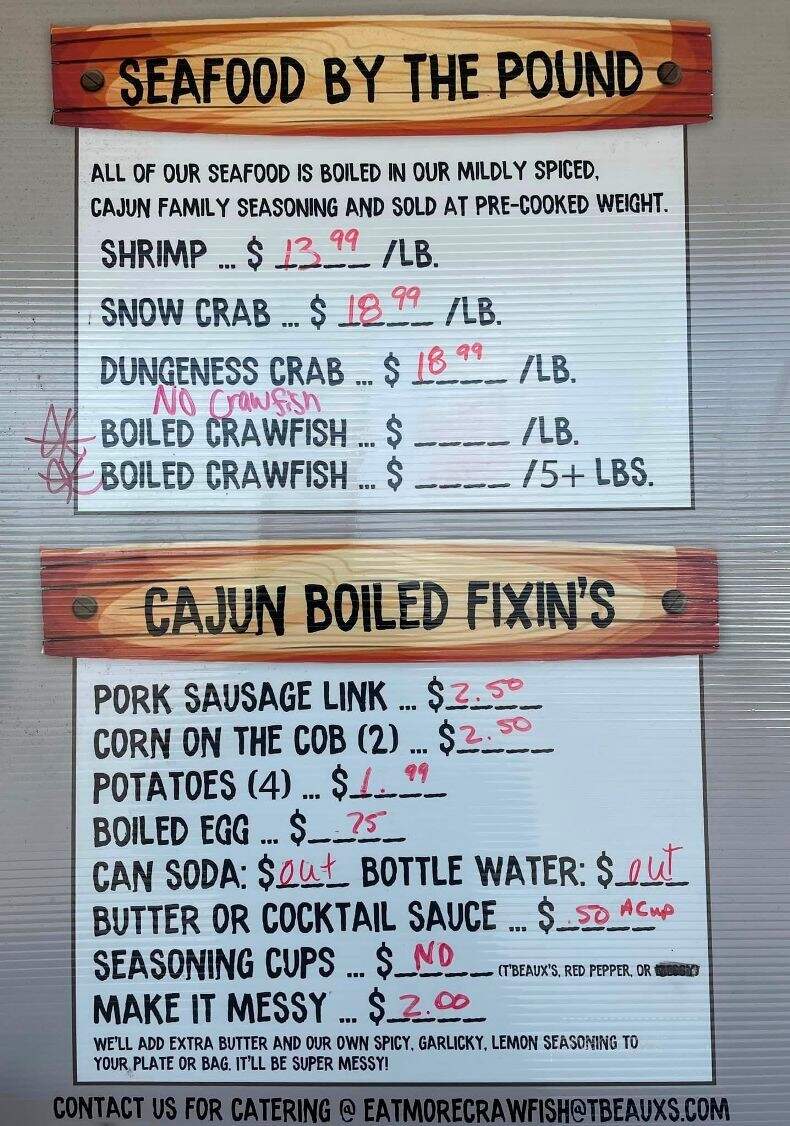 SEAFOOD BY THE POUND
ALL OF OUR SEAFOOD IS BOILED IN OUR MILDLY SPICED,
CAJUN FAMILY SEASONING AND SOLD AT PRE-COOKED WEIGHT.
SHRIMP ... $ 13 99 /LB.
SNOW CRAB ... $ 18 99 /LB.
DUNGENESS CRAB ... $ 18 99 /LB.
NO Crawfish
BOILED CRAWFISH ... $ ____ /LB.
BOILED CRAWFISH ... $ ____ /5+ LBS.
CAJUN BOILED FIXIN'S
PORK SAUSAGE LINK ... $ 2.50
CORN ON THE COB (2) ... $ 2.50
POTATOES (4) ... $ 1.99
BOILED EGG ... $ .75
CAN SODA: $ out BOTTLE WATER: $ out
BUTTER OR COCKTAIL SAUCE ... $ .50 A Cup
SEASONING CUPS ... $ NO (T'BEAUX'S, RED PEPPER, OR
MAKE IT MESSY ... $ 2.00
WE'LL ADD EXTRA BUTTER AND OUR OWN SPICY, GARLICKY, LEMON SEASONING TO
YOUR PLATE OR BAG. IT'LL BE SUPER MESSY!
CONTACT US FOR CATERING @ EATMORECRAWFISH@TBEAUXS.COM